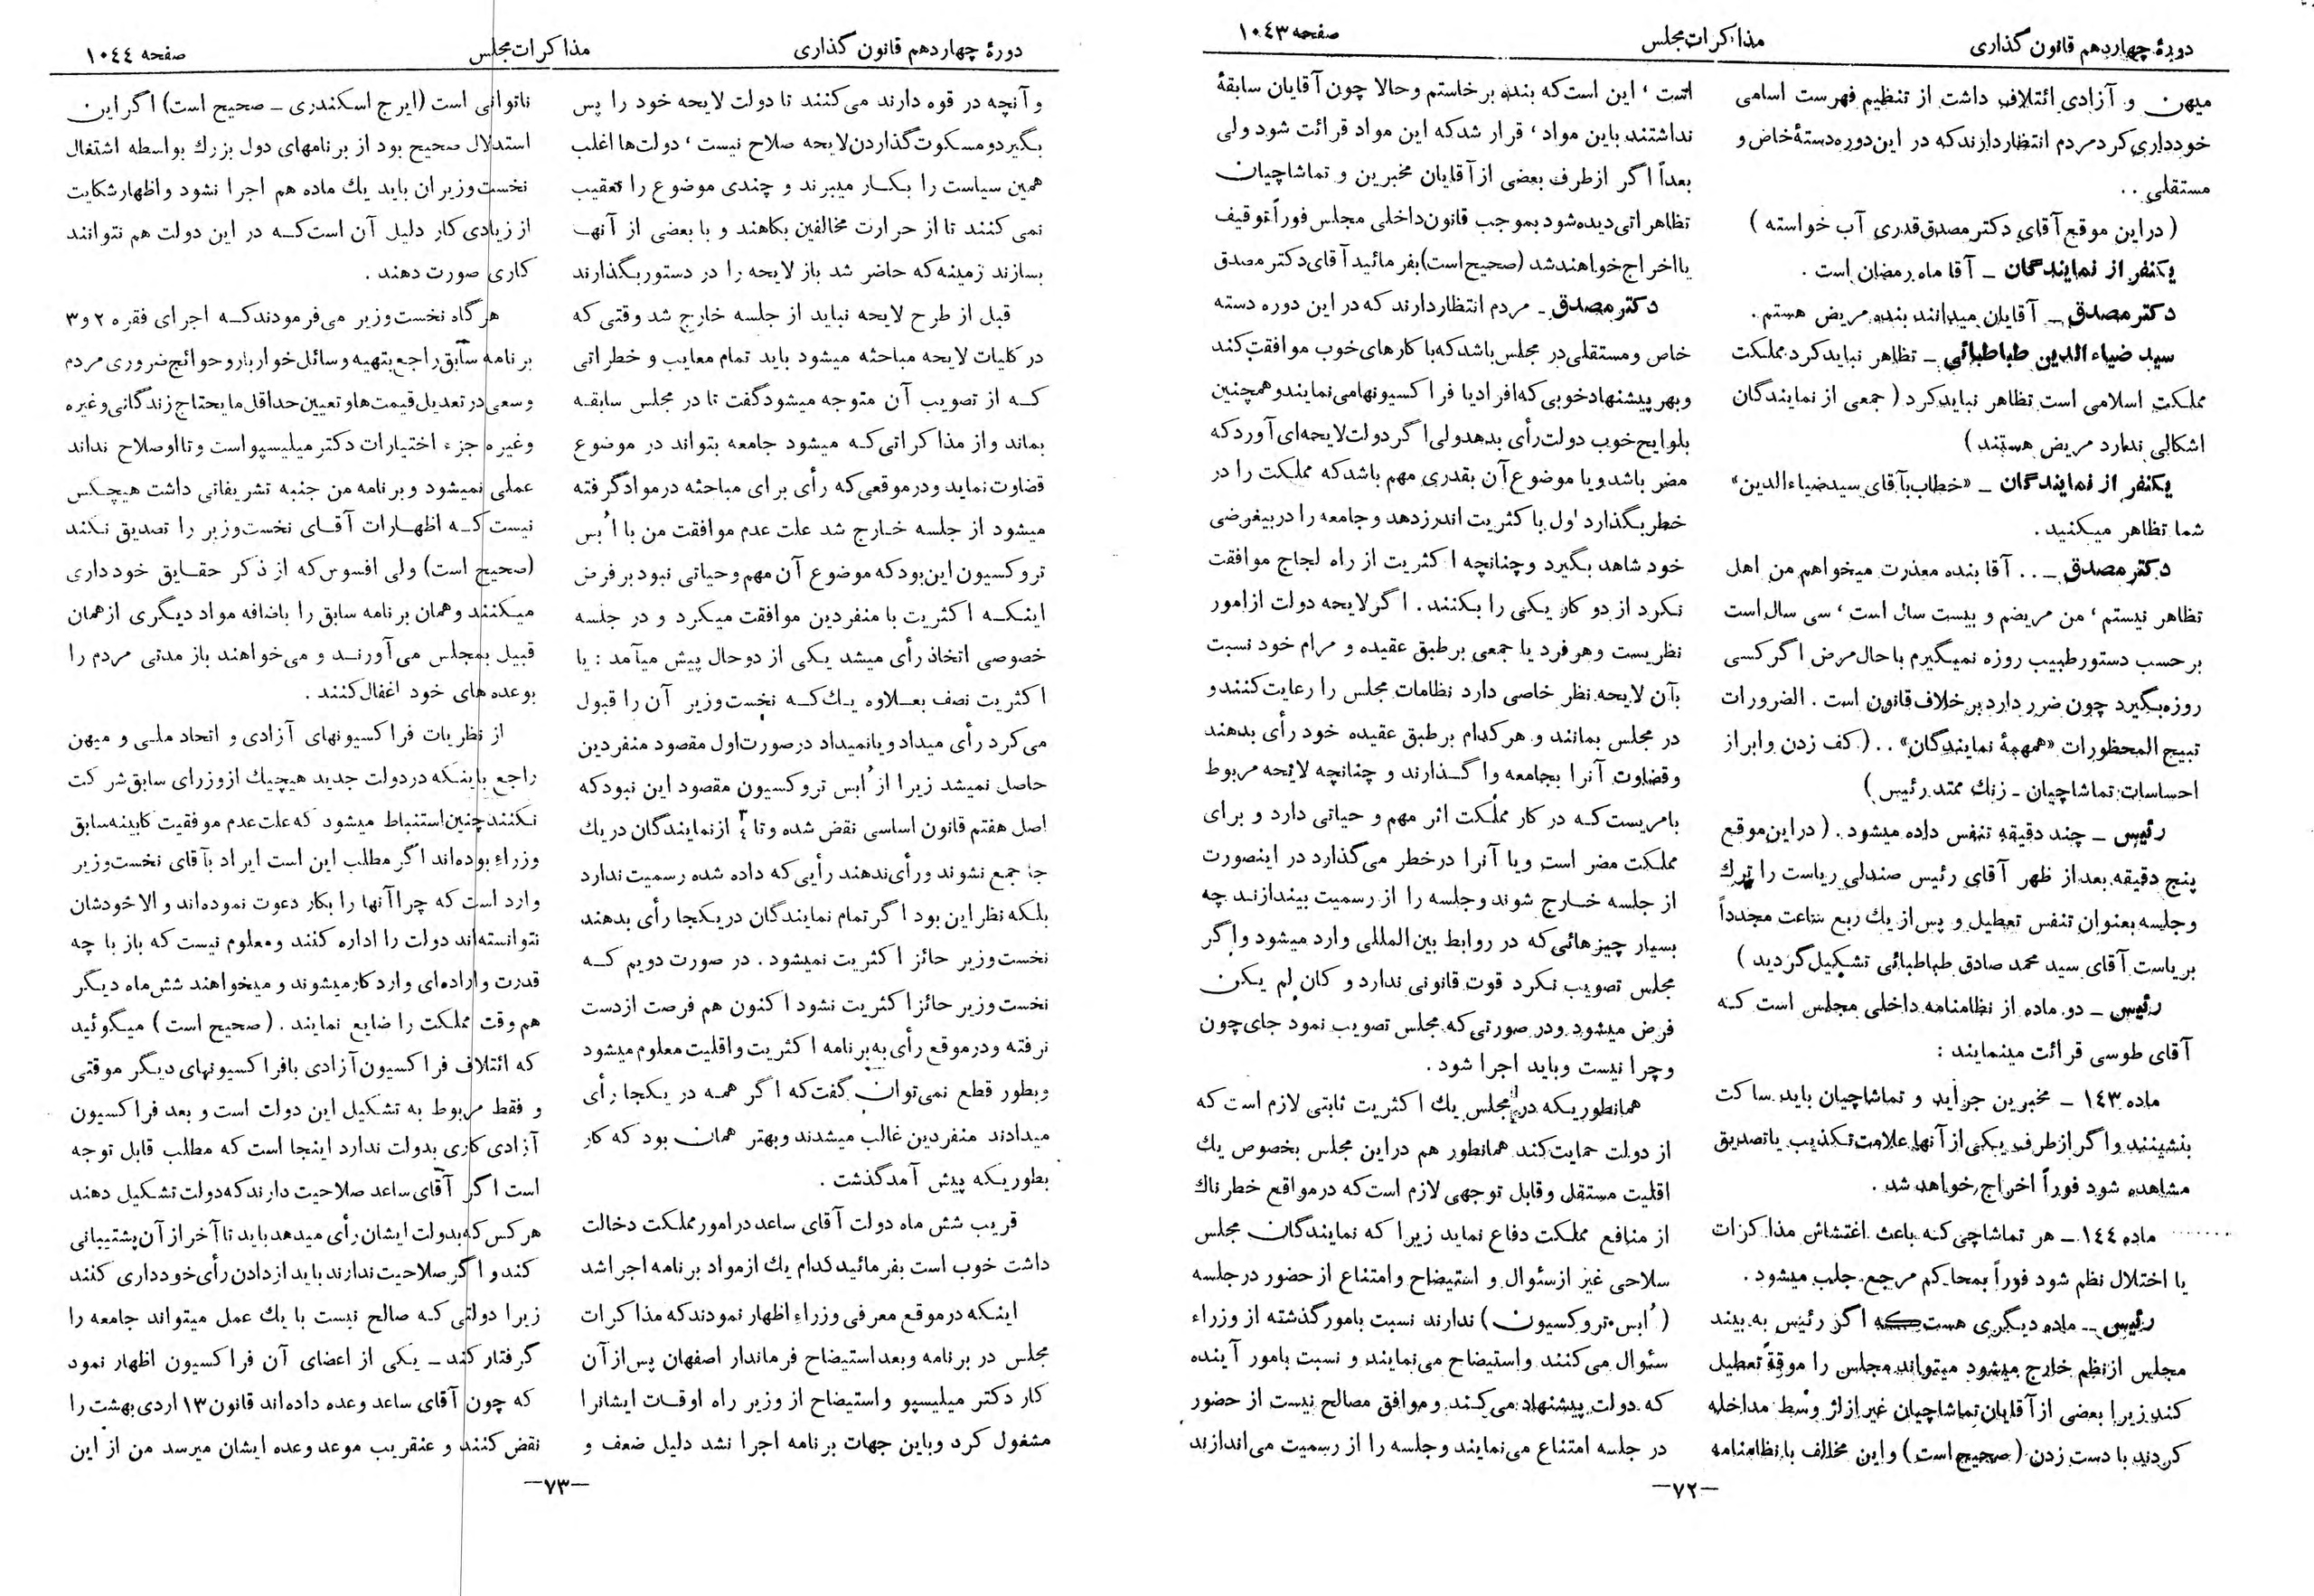 دورهٔ چهاردهم قانون گذاری
مذاکرات مجلس
صفحه ۱۰۴۳
میهن و آزادی ائتلاف داشت از تنظیم فهرست اسامی
خودداری کرد مردم انتظار دارند که در این دوره دستهٔ خاص و
مستقلی . .
( در این موقع آقای دکتر مصدق قدری آب خواسته )
یکنفر از نمایندگان ــ آقا ماه رمضان است .
دکتر مصدق ــ آقایان میدانند بنده مریض هستم.
سید ضیاء الدین طباطبائی ــ تظاهر نباید کرد مملکت
مملکت اسلامی است تظاهر نباید کرد ( جمعی از نمایندگان
اشکالی ندارد مریض هستند )
یکنفر از نمایندگان ــ «خطاب بآقای سید ضیاءالدین»
شما تظاهر میکنید .
دکتر مصدق ــ . . آقا بنده معذرت میخواهم من اهل
تظاهر نیستم ، من مریضم و بیست سال است ، سی سال است
بر حسب دستور طبیب روزه نمیگیرم با حال مرض اگر کسی
روزه بگیرد چون ضرر دارد بر خلاف قانون است . الضرورات
تبیح المحظورات «همهمهٔ نمایندگان» . . ( کف زدن و ابراز
احساسات تماشاچیان ـ زنك ممتد رئیس )
رئیس ــ چند دقیقه تنفس داده میشود . ( در این موقع
پنج دقیقه بعد از ظهر آقای رئیس صندلی ریاست را ترك
و جلسه بعنوان تنفس تعطیل و پس از یك ربع ساعت مجدداً
بریاست آقای سید محمد صادق طباطبائی تشکیل گردید )
رئیس ــ دو ماده از نظامنامه داخلی مجلس است که
آقای طوسی قرائت مینمایند :
ماده ۱۴۳ ــ مخبرین جراید و تماشاچیان باید ساکت
بنشینند و اگر از طرف یکی از آنها علامت تکذیب یا تصدیق
مشاهده شود فوراً اخراج خواهد شد .
ماده ۱۴۴ ــ هر تماشاچی که باعث اغتشاش مذاکرات
یا اختلال نظم شود فوراً بمحاکم مرجع جلب میشود .
رئیس ــ ماده دیگری هست که اگر رئیس به بیند
مجلس از نظم خارج میشود میتواند مجلس را موقةً تعطیل
کند زیرا بعضی از آقایان تماشاچیان غیر از لژ وسط مداخله
کردند با دست زدن ( صحیح است ) و این مخالف با نظامنامه
است ، این است که بنده برخاستم و حالا چون آقایان سابقهٔ
نداشتند باین مواد ، قرار شد که این مواد قرائت شود ولی
بعداً اگر از طرف بعضی از آقایان مخبرین و تماشاچیان
تظاهراتی دیده شود بموجب قانون داخلی مجلس فوراً توقیف
یا اخراج خواهند شد (صحیح است) بفرمائید آقای دکتر مصدق
دکتر مصدق ـ مردم انتظار دارند که در این دوره دسته
خاص و مستقلی در مجلس باشد که با کارهای خوب موافقت کند
و بهر پیشنهاد خوبی که افراد یا فراکسیونها می نمایند و همچنین
بلوایح خوب دولت رأی بدهد ولی اگر دولت لایحه ای آورد که
مضر باشد و یا موضوع آن بقدری مهم باشد که مملکت را در
خطر بگذارد اول با کثریت اندرز دهد و جامعه را در بیغرضی
خود شاهد بگیرد و چنانچه اکثریت از راه لجاج موافقت
نکرد از دو کار یکی را بکنند . اگر لایحه دولت از امور
نظریست و هر فرد یا جمعی بر طبق عقیده و مرام خود نسبت
بآن لایحه نظر خاصی دارد نظامات مجلس را رعایت کنند و
در مجلس بمانند و هر کدام بر طبق عقیده خود رأی بدهند
و قضاوت آنرا بجامعه واگذارند و چنانچه لایحه مربوط
بامریست که در کار مملکت اثر مهم و حیاتی دارد و برای
مملکت مضر است و یا آنرا در خطر می گذارد در اینصورت
از جلسه خارج شوند و جلسه را از رسمیت بیندازند چه
بسیار چیزهائی که در روابط بین المللی وارد میشود و اگر
مجلس تصویب نکرد قوت قانونی ندارد و کان لم یکن
فرض میشود و در صورتی که مجلس تصویب نمود جای چون
و چرا نیست و باید اجرا شود .
همانطوریکه در مجلس یك اکثریت ثابتی لازم است که
از دولت حمایت کند همانطور هم در این مجلس بخصوص یك
اقلیت مستقل و قابل توجهی لازم است که در مواقع خطرناك
از منافع مملکت دفاع نماید زیرا که نمایندگان مجلس
سلاحی غیر از سئوال و استیضاح و امتناع از حضور در جلسه
( اُبس تروکسیون ) ندارند نسبت بامور گذشته از وزراء
سئوال می کنند و استیضاح می نمایند و نسبت بامور آینده
که دولت پیشنهاد می کند و موافق مصالح نیست از حضور
در جلسه امتناع می نمایند و جلسه را از رسمیت می اندازند
—۷۲—
دورهٔ چهاردهم قانون گذاری
مذاکرات مجلس
صفحه ۱۰۴۴
و آنچه در قوه دارند می کنند تا دولت لایحه خود را پس
بگیرد و مسکوت گذاردن لایحه صلاح نیست ، دولت ها اغلب
همین سیاست را بکار میبرند و چندی موضوع را تعقیب
نمی کنند تا از حرارت مخالفین بکاهند و با بعضی از آنها
بسازند زمینه که حاضر شد باز لایحه را در دستور بگذارند
قبل از طرح لایحه نباید از جلسه خارج شد وقتی که
در کلیات لایحه مباحثه میشود باید تمام معایب و خطراتی
که از تصویب آن متوجه میشود گفت تا در مجلس سابقه
بماند و از مذاکراتی که میشود جامعه بتواند در موضوع
قضاوت نماید و در موقعی که رأی برای مباحثه در مواد گرفته
میشود از جلسه خارج شد علت عدم موافقت من با اُبس
تروکسیون این بود که موضوع آن مهم و حیاتی نبود بر فرض
اینکه اکثریت با منفردین موافقت میکرد و در جلسه
خصوصی اتخاذ رأی میشد یکی از دو حال پیش میآمد : یا
اکثریت نصف بعلاوه یك که نخست وزیر آن را قبول
می کرد رأی میداد و یا نمیداد در صورت اول مقصود منفردین
حاصل نمیشد زیرا از اُبس تروکسیون مقصود این نبود که
اصل هفتم قانون اساسی نقض شده و تا ۳/۴ از نمایندگان در یك
جا جمع نشوند و رأی ندهند رأیی که داده شده رسمیت ندارد
بلکه نظر این بود اگر تمام نمایندگان در یکجا رأی بدهند
نخست وزیر حائز اکثریت نمیشود . در صورت دویم که
نخست وزیر حائز اکثریت نشود اکنون هم فرصت از دست
نرفته و در موقع رأی به برنامه اکثریت و اقلیت معلوم میشود
و بطور قطع نمی توان گفت که اگر همه در یکجا رأی
میدادند منفردین غالب میشدند و بهتر همان بود که کار
بطوریکه پیش آمد گذشت .
قریب شش ماه دولت آقای ساعد در امور مملکت دخالت
داشت خوب است بفرمائید کدام یك از مواد برنامه اجرا شد
اینکه در موقع معرفی وزراء اظهار نمودند که مذاکرات
مجلس در برنامه و بعد استیضاح فرماندار اصفهان پس از آن
کار دکتر میلیسپو و استیضاح از وزیر راه اوقات ایشانرا
مشغول کرد و باین جهات برنامه اجرا نشد دلیل ضعف و
ناتوانی است (ایرج اسکندری ــ صحیح است) اگر این
استدلال صحیح بود از برنامهای دول بزرك بواسطه اشتغال
نخست وزیران باید یك ماده هم اجرا نشود و اظهار شکایت
از زیادی کار دلیل آن است که در این دولت هم نتوانند
کاری صورت دهند .
هر گاه نخست وزیر می فرمودند که اجرای فقره ۲ و ۳
برنامه سابق راجع بتهیه وسائل خواربار و حوائج ضروری مردم
و سعی در تعدیل قیمت ها و تعیین حداقل مایحتاج زندگانی و غیره
و غیره جزء اختیارات دکتر میلیسپو است و تا او صلاح نداند
عملی نمیشود و برنامه من جنبه تشریفاتی داشت هیچکس
نیست که اظهارات آقای نخست وزیر را تصدیق نکند
(صحیح است) ولی افسوس که از ذکر حقایق خودداری
میکنند و همان برنامه سابق را باضافه مواد دیگری از همان
قبیل بمجلس می آورند و می خواهند باز مدتی مردم را
بوعده های خود اغفال کنند .
از نظریات فراکسیونهای آزادی و اتحاد ملی و میهن
راجع باینکه در دولت جدید هیچیك از وزرای سابق شرکت
نکنند چنین استنباط میشود که علت عدم موفقیت کابینه سابق
وزراء بوده اند اگر مطلب این است ایراد بآقای نخست وزیر
وارد است که چرا آنها را بکار دعوت نموده اند و الا خودشان
نتوانسته اند دولت را اداره کنند و معلوم نیست که باز با چه
قدرت و اراده ای وارد کار میشوند و میخواهند شش ماه دیگر
هم وقت مملکت را ضایع نمایند . (صحیح است) میگوئید
که ائتلاف فراکسیون آزادی با فراکسیونهای دیگر موقتی
و فقط مربوط به تشکیل این دولت است و بعد فراکسیون
آزادی کاری بدولت ندارد اینجا است که مطلب قابل توجه
است اگر آقای ساعد صلاحیت دارند که دولت تشکیل دهند
هر کس که بدولت ایشان رأی میدهد باید تا آخر از آن پشتیبانی
کند و اگر صلاحیت ندارند باید از دادن رأی خودداری کنند
زیرا دولتی که صالح نیست با یك عمل میتواند جامعه را
گرفتار کند ــ یکی از اعضای آن فراکسیون اظهار نمود
که چون آقای ساعد وعده داده اند قانون ۱۳ اردی بهشت را
نقض کنند و عنقریب موعد وعده ایشان میرسد من از این
—۷۳—